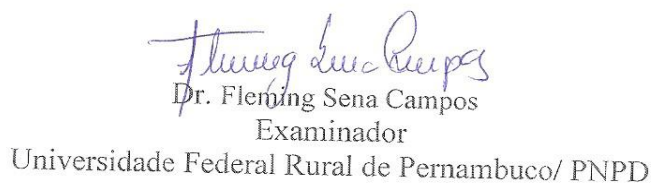 Fleming Sena Campos
Dr. Fleming Sena Campos
Examinador
Universidade Federal Rural de Pernambuco/ PNPD